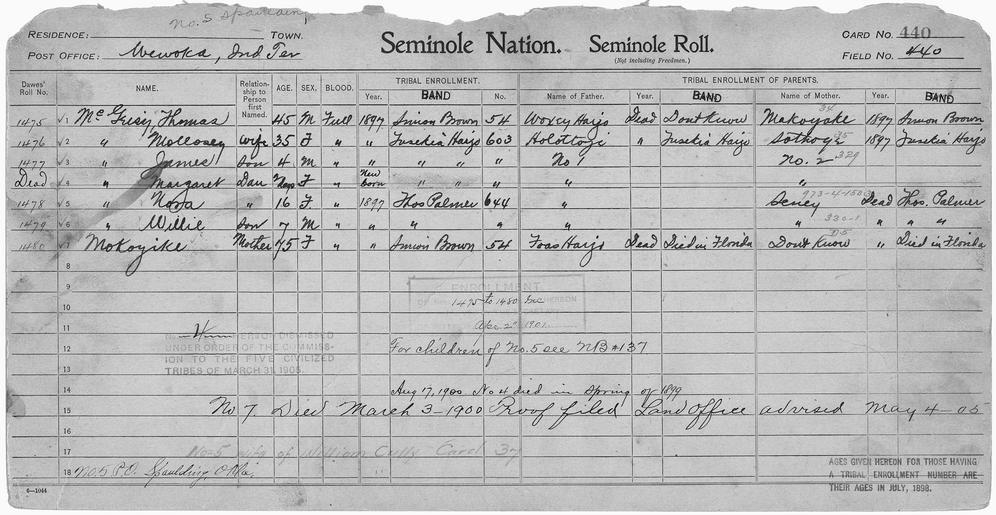 No. 5 Spaulding
RESIDENCE: TOWN.
POST OFFICE: Wewoka, Ind Ter
Seminole Nation. Seminole Roll.
(Not including Freedmen.)
CARD NO. 440
FIELD NO. 440
Dawes' Roll No. NAME. Relationship to Person first Named. AGE. SEX. BLOOD. TRIBAL ENROLLMENT. TRIBAL ENROLLMENT OF PARENTS.
Year. BAND No. Name of Father. Year. BAND Name of Mother. Year. BAND
34
1475 √1 Mc Girsy Thomas 45 M Full 1897 Simion Brown 54 Woxey Harjo Dead Dont Know Makoyake 1897 Simion Brown
1476 √2 " Mollosey Wife 35 F " " Tusekia Harjo 603 Holottogi " Tusekia Harjo 35 1897 Tusekia Harjo
1477 √3 " James Son 4 M " " " " " No 1 No. 2 329
Dead √4 " Margaret Dau 2 Days F " New Born " " " "
1478 √5 " Nora " 16 F " 1897 Thos Palmer 644 " Seney Dead Thos. Palmer
1479 √6 " Willie Son 7 M " " " " " " 330-1 " " "
1480 √7 Mokoyike Mother 75 F " " Simion Brown 54 Foas Harjo Dead Died in Florida Dont Know " Died in Florida
8
9 ENROLLMENT
10 1475 to 1480 Inc
11 Apr. 2" 1901
12 For children of No. 5 see NB #137
UNDER ORDER OF THE COMMISSION TO THE FIVE CIVILIZED
13 TRIBES OF MARCH 31, 1905.
14 Aug 17, 1900 No 4 died in Spring of 1899
15 No 7. Died March 3-1900 Proof filed Land Office advised May 4-05
16
17 No 5 wife of William Cully Card 37
18 No. 5 P.O. Spaulding, Okla.
6-1044
AGES GIVEN HEREON FOR THOSE HAVING
A TRIBAL ENROLLMENT NUMBER ARE
THEIR AGES IN JULY, 1898.